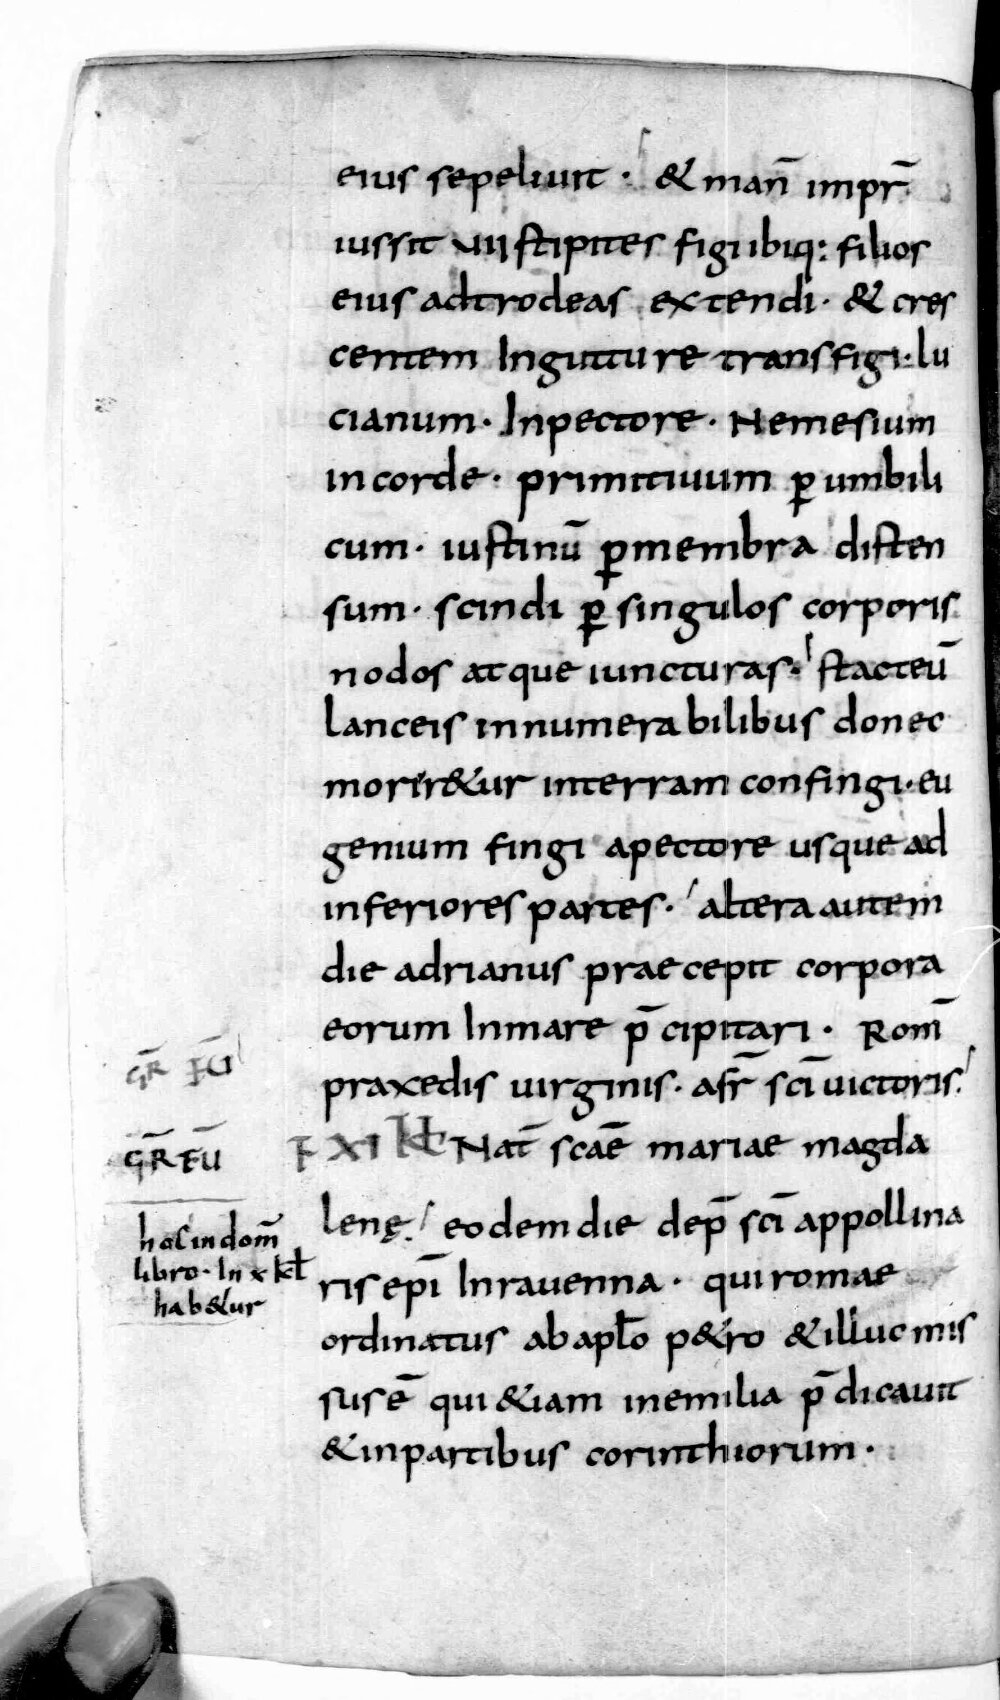 eius sepeliuit · & mañ impr̄
iussit uii stipites figi ibiq: filios
eius adtrodeas extendi · & cres
centem In gutture transfigi · lu
cianum · In pectore · Nemesium
in corde · primitiuum ꝑ umbili
cum · iustinū ꝑ membra disten
sum · scindi ꝑ singulos corporis
nodos atque iuncturas · stacteū
lanceis innumerabilibus donec
morir&ur in terram confingi · eu
genium fingi a pectore usque ad
inferiores partes · altera autem
die adrianus praecepit corpora
eorum In mare p̄cipitari · Rom̄
praxedis uirginis · afr̄ sc̄i uictoris
F XI kł Nat̄ scāe mariae magda
lenę · eodem die dep̄ sc̄i appollina
ris ep̄i In rauenna · qui romae
ordinatus ab apło p&ro & illuc mis
sus ē qui &iam in emilia p̄dicauit
& in partibus corinthiorum ·
GR̄ FŪ
GR̄ FŪ
hoc in dom̄
libro · In x kł
hab&ur